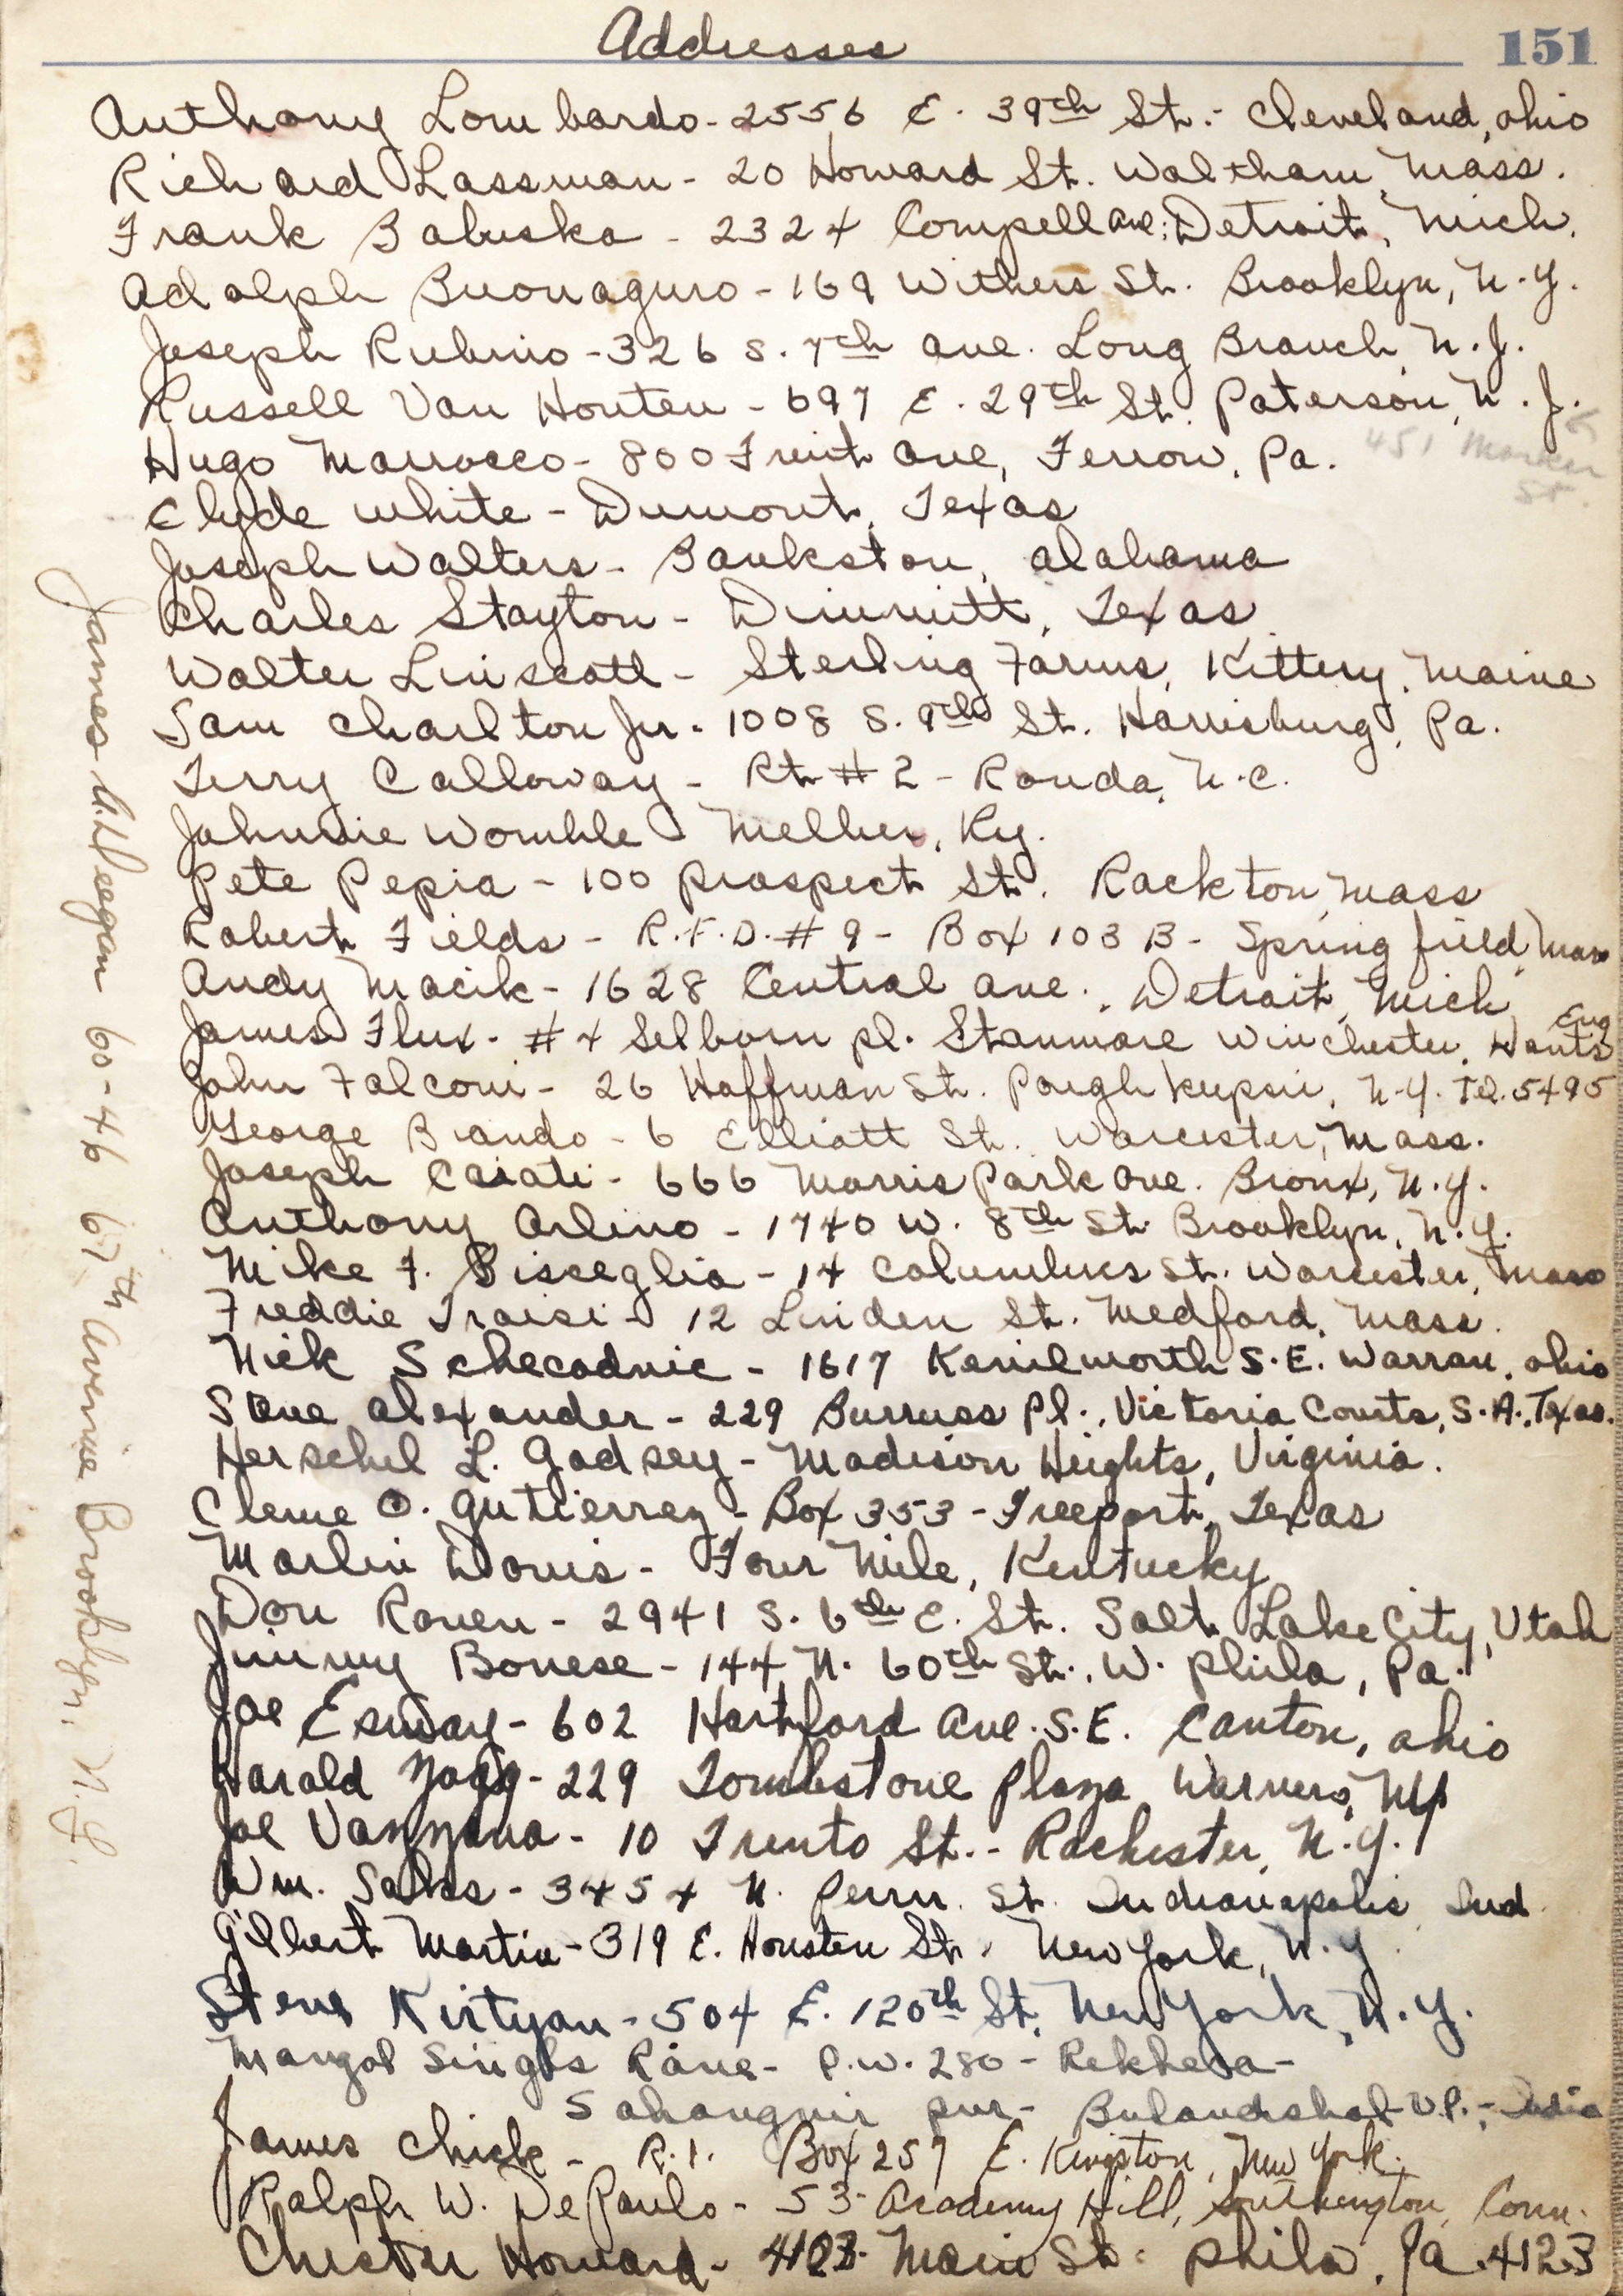 Addresses
151
Anthony Lombardo - 2556 E. 39th St. - Cleveland, Ohio
Richard Lassman - 20 Howard St. Waltham, Mass.
Frank Babuska - 2324 Campell Ave; Detroit, Mich.
Adolph Buonaguro - 169 Withers St. Brooklyn, N.Y.
Joseph Rubino - 326 S. 7th Ave. Long Branch, N.J.
Russell Van Houten - 697 E. 29th St. Paterson, N.J.
451 Market St.
Hugo Marrocco - 800 Fruit Ave, Ferrow, Pa.
Clyde White - Dumont, Texas
Joseph Walters - Bankston, Alabama
Charles Stayton - Dimmitt, Texas
Walter Linscott - Sterling Farms, Kittery, Maine
Sam Charlton Jr. - 1008 S. 9th St. Harrisburg, Pa.
Terry Calloway - Rt #2 - Ronda, N.C.
Johnnie Womble - Melber, Ky.
Pete Pepia - 100 Prospect St. Rackton, Mass
Robert Fields - R.F.D. #9 - Box 103 B - Springfield, Mass
Andy Macik - 1628 Central Ave., Detroit, Mich
James Flux - #4 Selborn Pl. Stanmore Winchester, Hants Eng
John Falconi - 26 Hoffman St. Poughkeepsie, N.Y. Tel. 5495
George Biando - 6 Elliott St. Worcester, Mass.
Joseph Casati - 666 Morris Park Ave. Bronx, N.Y.
Anthony Arlino - 1740 W. 8th St. Brooklyn, N.Y.
Mike F. Bisceglia - 14 Columbus St. Worcester, Mass
Freddie Traisi - 12 Linden St. Medford, Mass.
Nick Schecodnic - 1617 Kenilworth S.E. Warran, Ohio
Steve Alexander - 229 Burruss Pl., Victoria Courts, S.A., Texas.
Herschel L. Godsey - Madison Heights, Virginia.
Cleme O. Gutierrez - Box 353 - Freeport, Texas
Marlin Davis - Four Mile, Kentucky
Don Rouen - 2941 S. 6th E. St. Salt Lake City, Utah
Jimmy Bonese - 144 N. 60th St., W. Phila, Pa.
Joe Esway - 602 Hartford Ave. S.E. Canton, Ohio
Harold - 229 Tombstone Plaza Warners, NY
Joe Vanzzana - 10 Trento St. - Rochester, N.Y.
Wm. Salks - 3454 N. Penn. St. Indianapolis Ind
Gilbert Martin - 319 E. Houston St., New York, N.Y.
Steve Kirtyan - 504 E. 120th St. New York, N.Y.
Mangol Singhs Rane - P.W. 280 - Rekheda -
Sahangir pur - Bulandshal U.P. - India
James Chick - R.1. Box 257 E. Kingston, New York.
Ralph W. DePaulo - 53 - Academy Hill, Southington, Conn.
Chester Howard - 4123 - Main St. Phila, Pa. 4123
James A. Heegan 60-46 67th Avenue Brooklyn, N.Y.